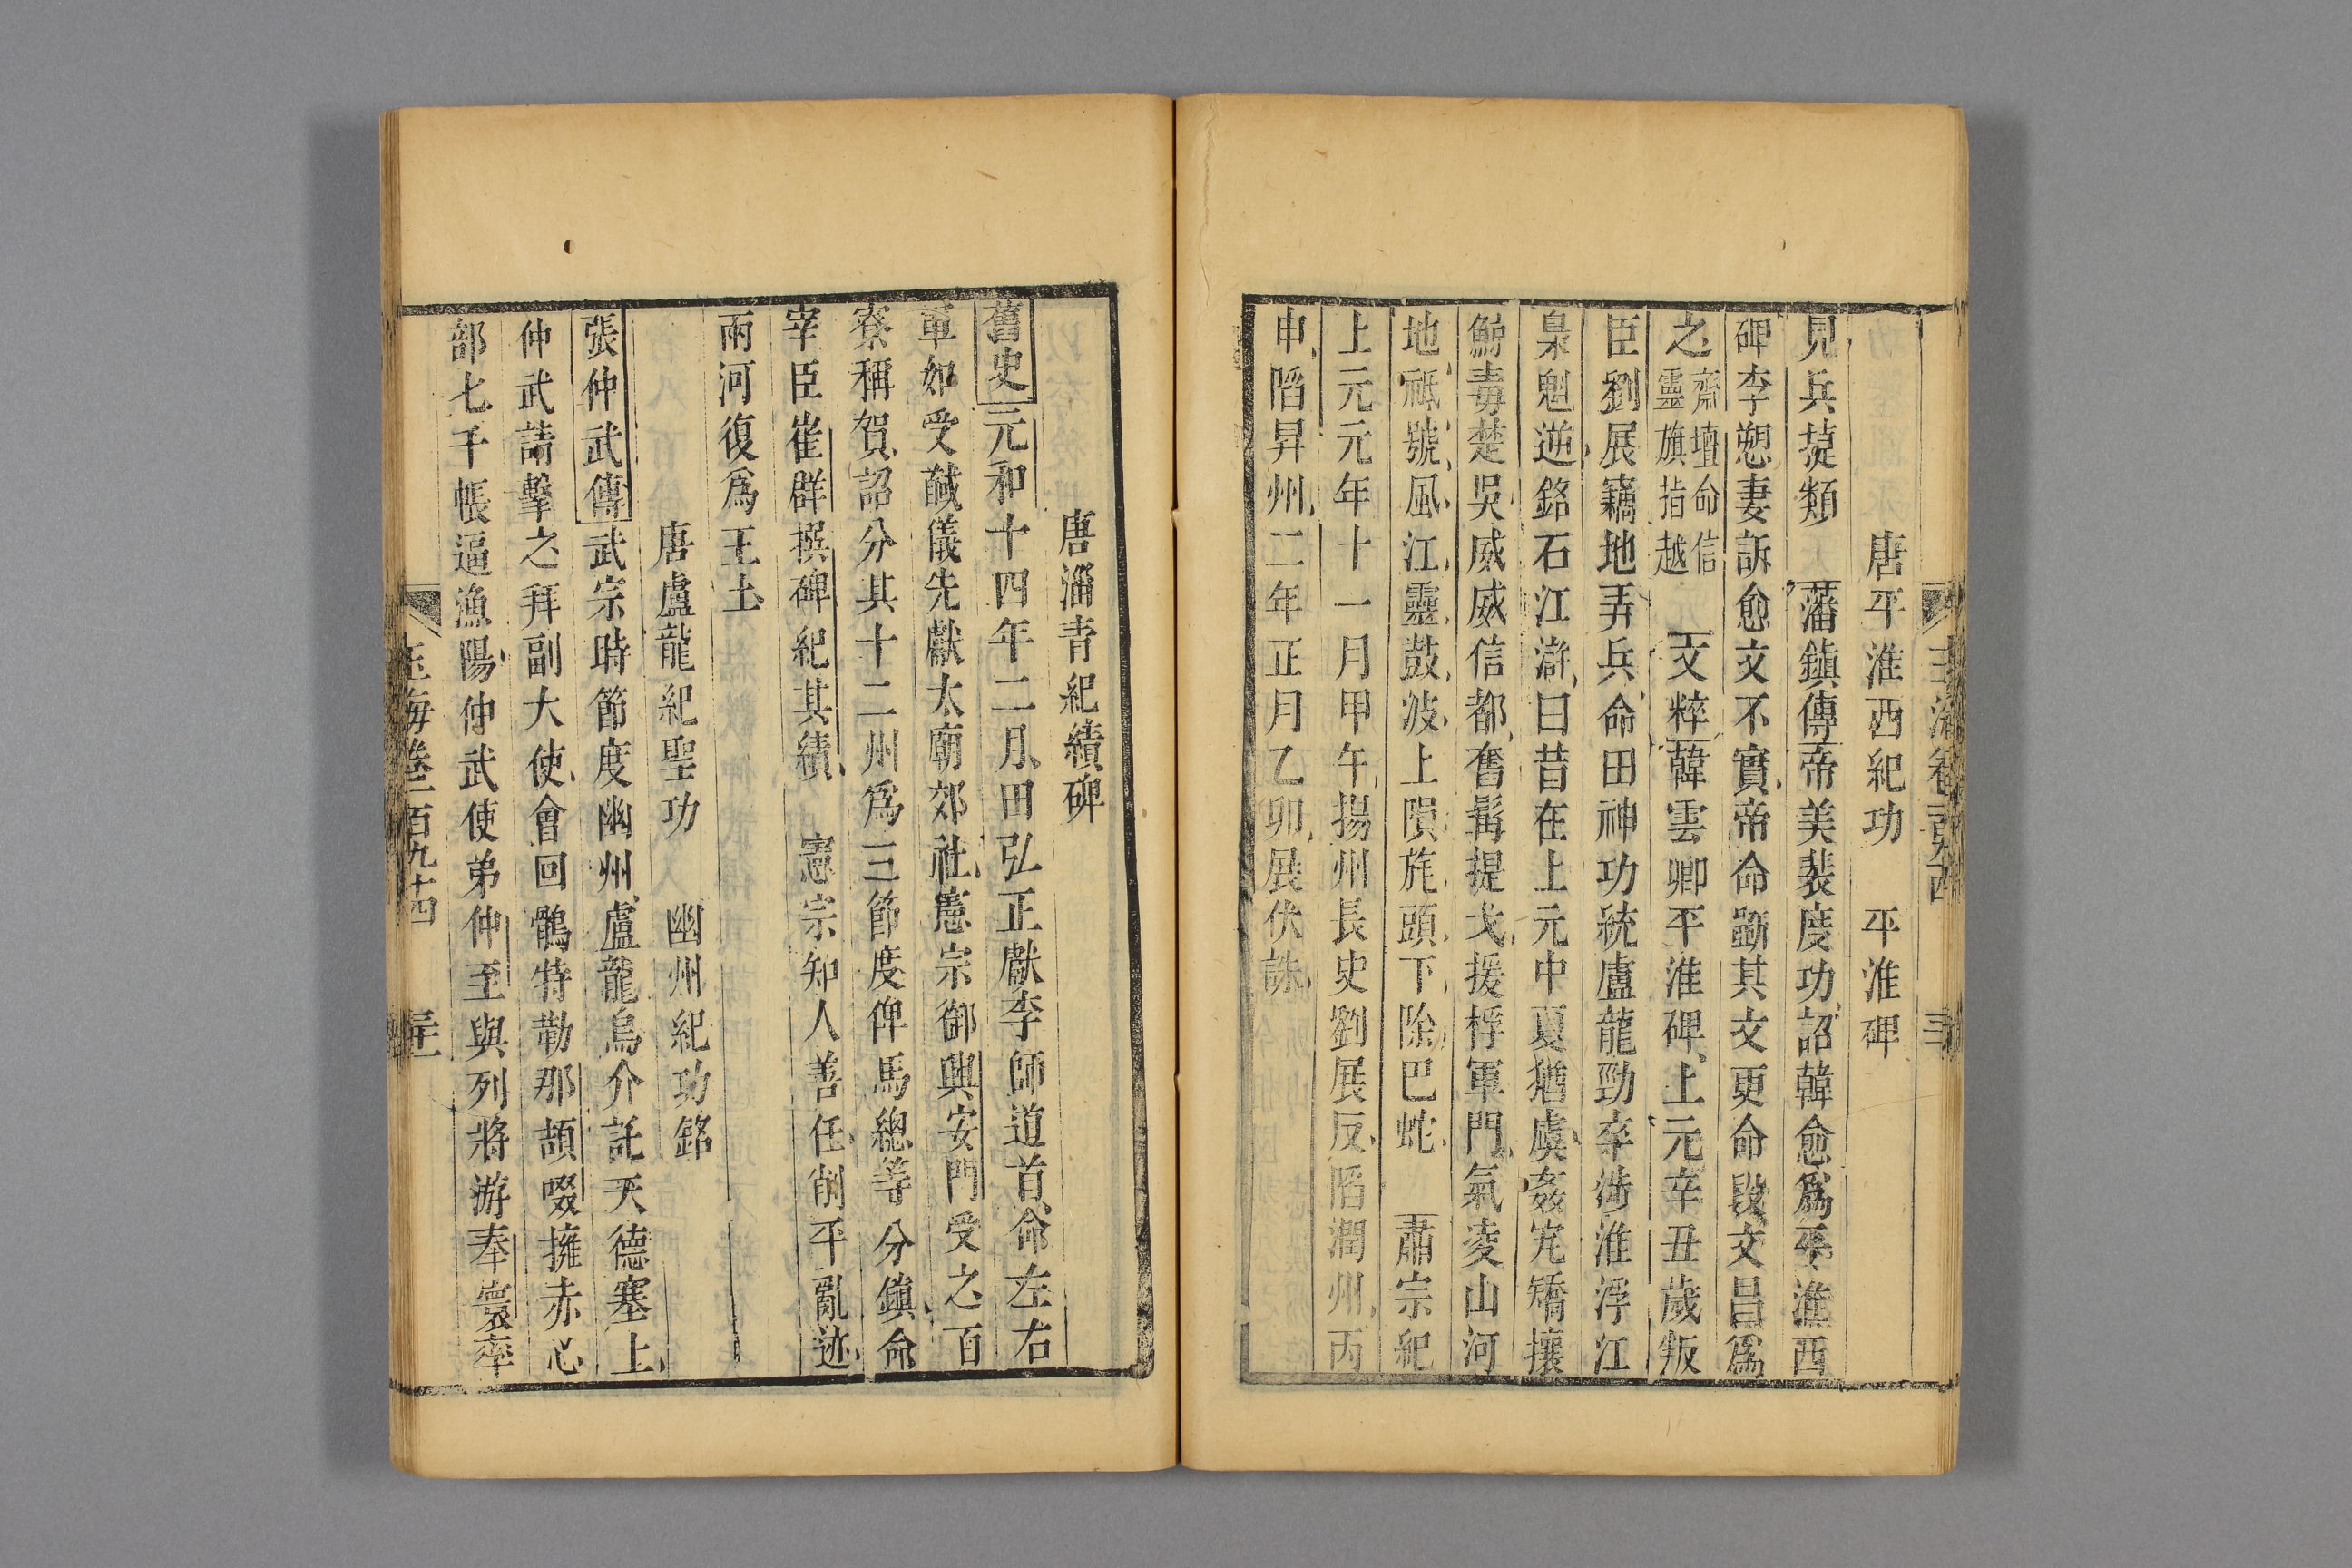 玉海卷一百九十四 三十
唐平淮西紀功 平淮碑
見兵捷類 藩鎮傳帝美裴度功詔韓愈爲平淮西
碑李愬妻訴愈文不實帝命斲其文更命段文昌爲
之齋壇命信靈旗指越 文粹韓雲卿平淮碑上元辛丑歲叛
臣劉展竊地弄兵命田神功統盧龍勁卒涉淮浮江
梟魁逆銘石江滸曰昔在上元中夏猶虞姦宄矯攘
鯨毒楚吳威威信都奮髯提戈援桴軍門氣凌山河
地祗號風江靈鼓波上隕旄頭下除巴蛇 肅宗紀
上元元年十一月甲午揚州長史劉展反陷潤州丙
申陷昇州二年正月乙卯展伏誅
唐淄青紀績碑
舊史元和十四年二月田弘正獻李師道首命左右
軍如受馘儀先獻太廟郊社憲宗御興安門受之百
寮稱賀詔分其十二州爲三節度俾馬總等分鎮命
宰臣崔群撰碑紀其績 憲宗知人善任削平亂迹
兩河復爲王土
唐盧龍紀聖功 幽州紀功銘
張仲武傳武宗時節度幽州盧龍烏介託天德塞上
仲武請擊之拜副大使會回鶻特勒那頡啜擁赤心
部七千帳逼漁陽仲武使弟仲至與列將游奉寰率
玉海卷一百九十四 三十一